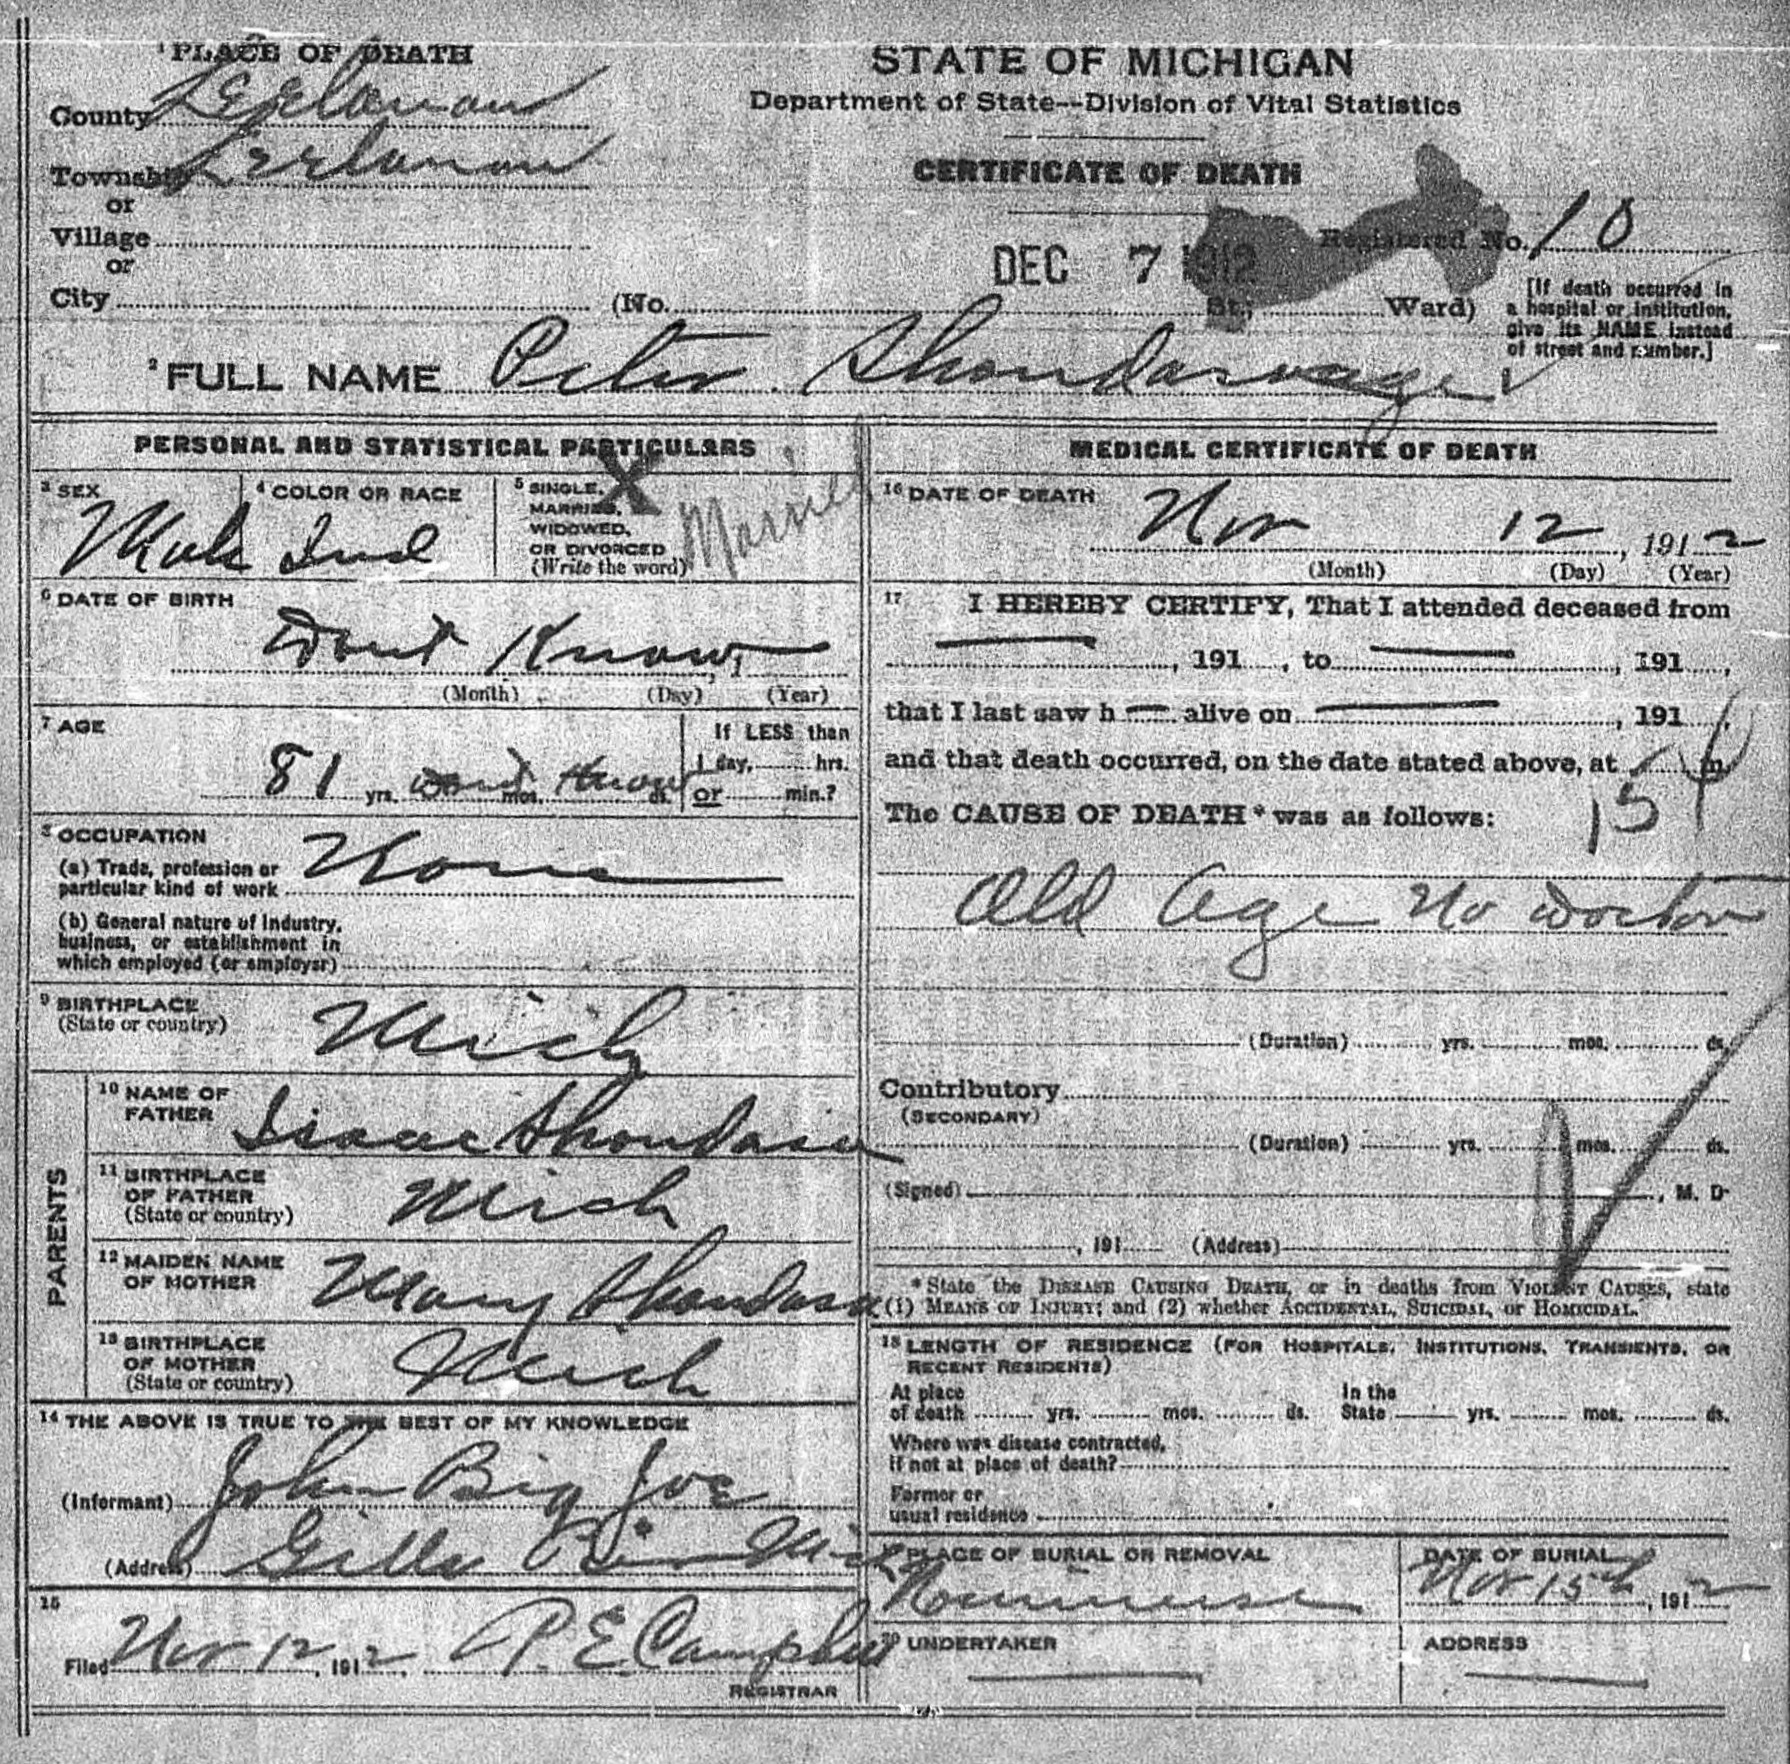 1 PLACE OF DEATH
County Leelanau
Township Leelanau
or
Village
or
City (No. St.; Ward)
STATE OF MICHIGAN
Department of State--Division of Vital Statistics
CERTIFICATE OF DEATH
DEC 7 1912
Registered No. 10
[If death occurred in
a hospital or institution,
give its NAME instead
of street and number.]
2 FULL NAME Peter
PERSONAL AND STATISTICAL PARTICULARS
3 SEX
Male
4 COLOR OR RACE
Ind
5 SINGLE,
MARRIED,
WIDOWED,
OR DIVORCED
(Write the word)
Married
X
6 DATE OF BIRTH
Dont Know
(Month) (Day) (Year)
7 AGE
81 yrs. Dont mos. Know ds.
If LESS than
1 day, hrs.
or min.?
8 OCCUPATION
(a) Trade, profession or
particular kind of work None
(b) General nature of Industry,
business, or establishment in
which employed (or employer)
9 BIRTHPLACE
(State or country)
Mich
PARENTS
10 NAME OF
FATHER
Isaac
11 BIRTHPLACE
OF FATHER
(State or country)
Mich
12 MAIDEN NAME
OF MOTHER
Mary
13 BIRTHPLACE
OF MOTHER
(State or country)
Mich
14 THE ABOVE IS TRUE TO THE BEST OF MY KNOWLEDGE
(Informant) John Big Joe
(Address) Gills Pier Mich
15
Filed Nov 12, 1912, P. E. Campbell
REGISTRAR
MEDICAL CERTIFICATE OF DEATH
16 DATE OF DEATH
Nov 12, 1912
(Month) (Day) (Year)
17 I HEREBY CERTIFY, That I attended deceased from
, 191 , to , 191 ,
that I last saw h alive on , 191 ,
and that death occurred, on the date stated above, at m
The CAUSE OF DEATH* was as follows:
154
Old Age No Doctor
(Duration) yrs. mos. ds.
Contributory
(SECONDARY)
(Duration) yrs. mos. ds.
(Signed) , M. D.
, 191 (Address)
*State the DISEASE CAUSING DEATH, or in deaths from VIOLENT CAUSES, state
(1) MEANS OF INJURY; and (2) whether ACCIDENTAL, SUICIDAL, or HOMICIDAL.
18 LENGTH OF RESIDENCE (FOR HOSPITALS, INSTITUTIONS, TRANSIENTS, OR
RECENT RESIDENTS)
At place
of death yrs. mos. ds.
In the
State yrs. mos. ds.
Where was disease contracted,
if not at place of death?
Former or
usual residence
PLACE OF BURIAL OR REMOVAL
DATE OF BURIAL
Nov 15th, 1912
20 UNDERTAKER
ADDRESS